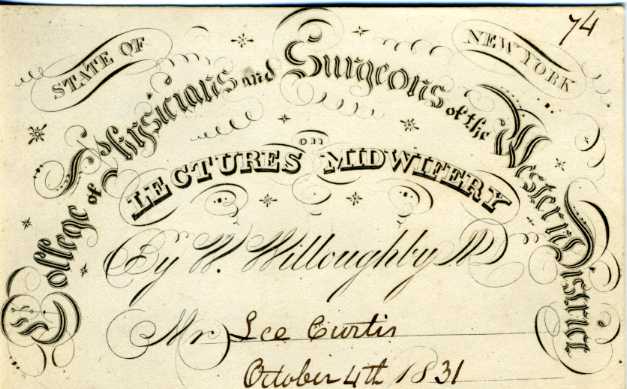 74
STATE OF
NEW YORK
College of Physicians and Surgeons of the Western District
LECTURES on MIDWIFERY
By W. Willoughby M D
Mr Lee Curtis
October 4th 1831